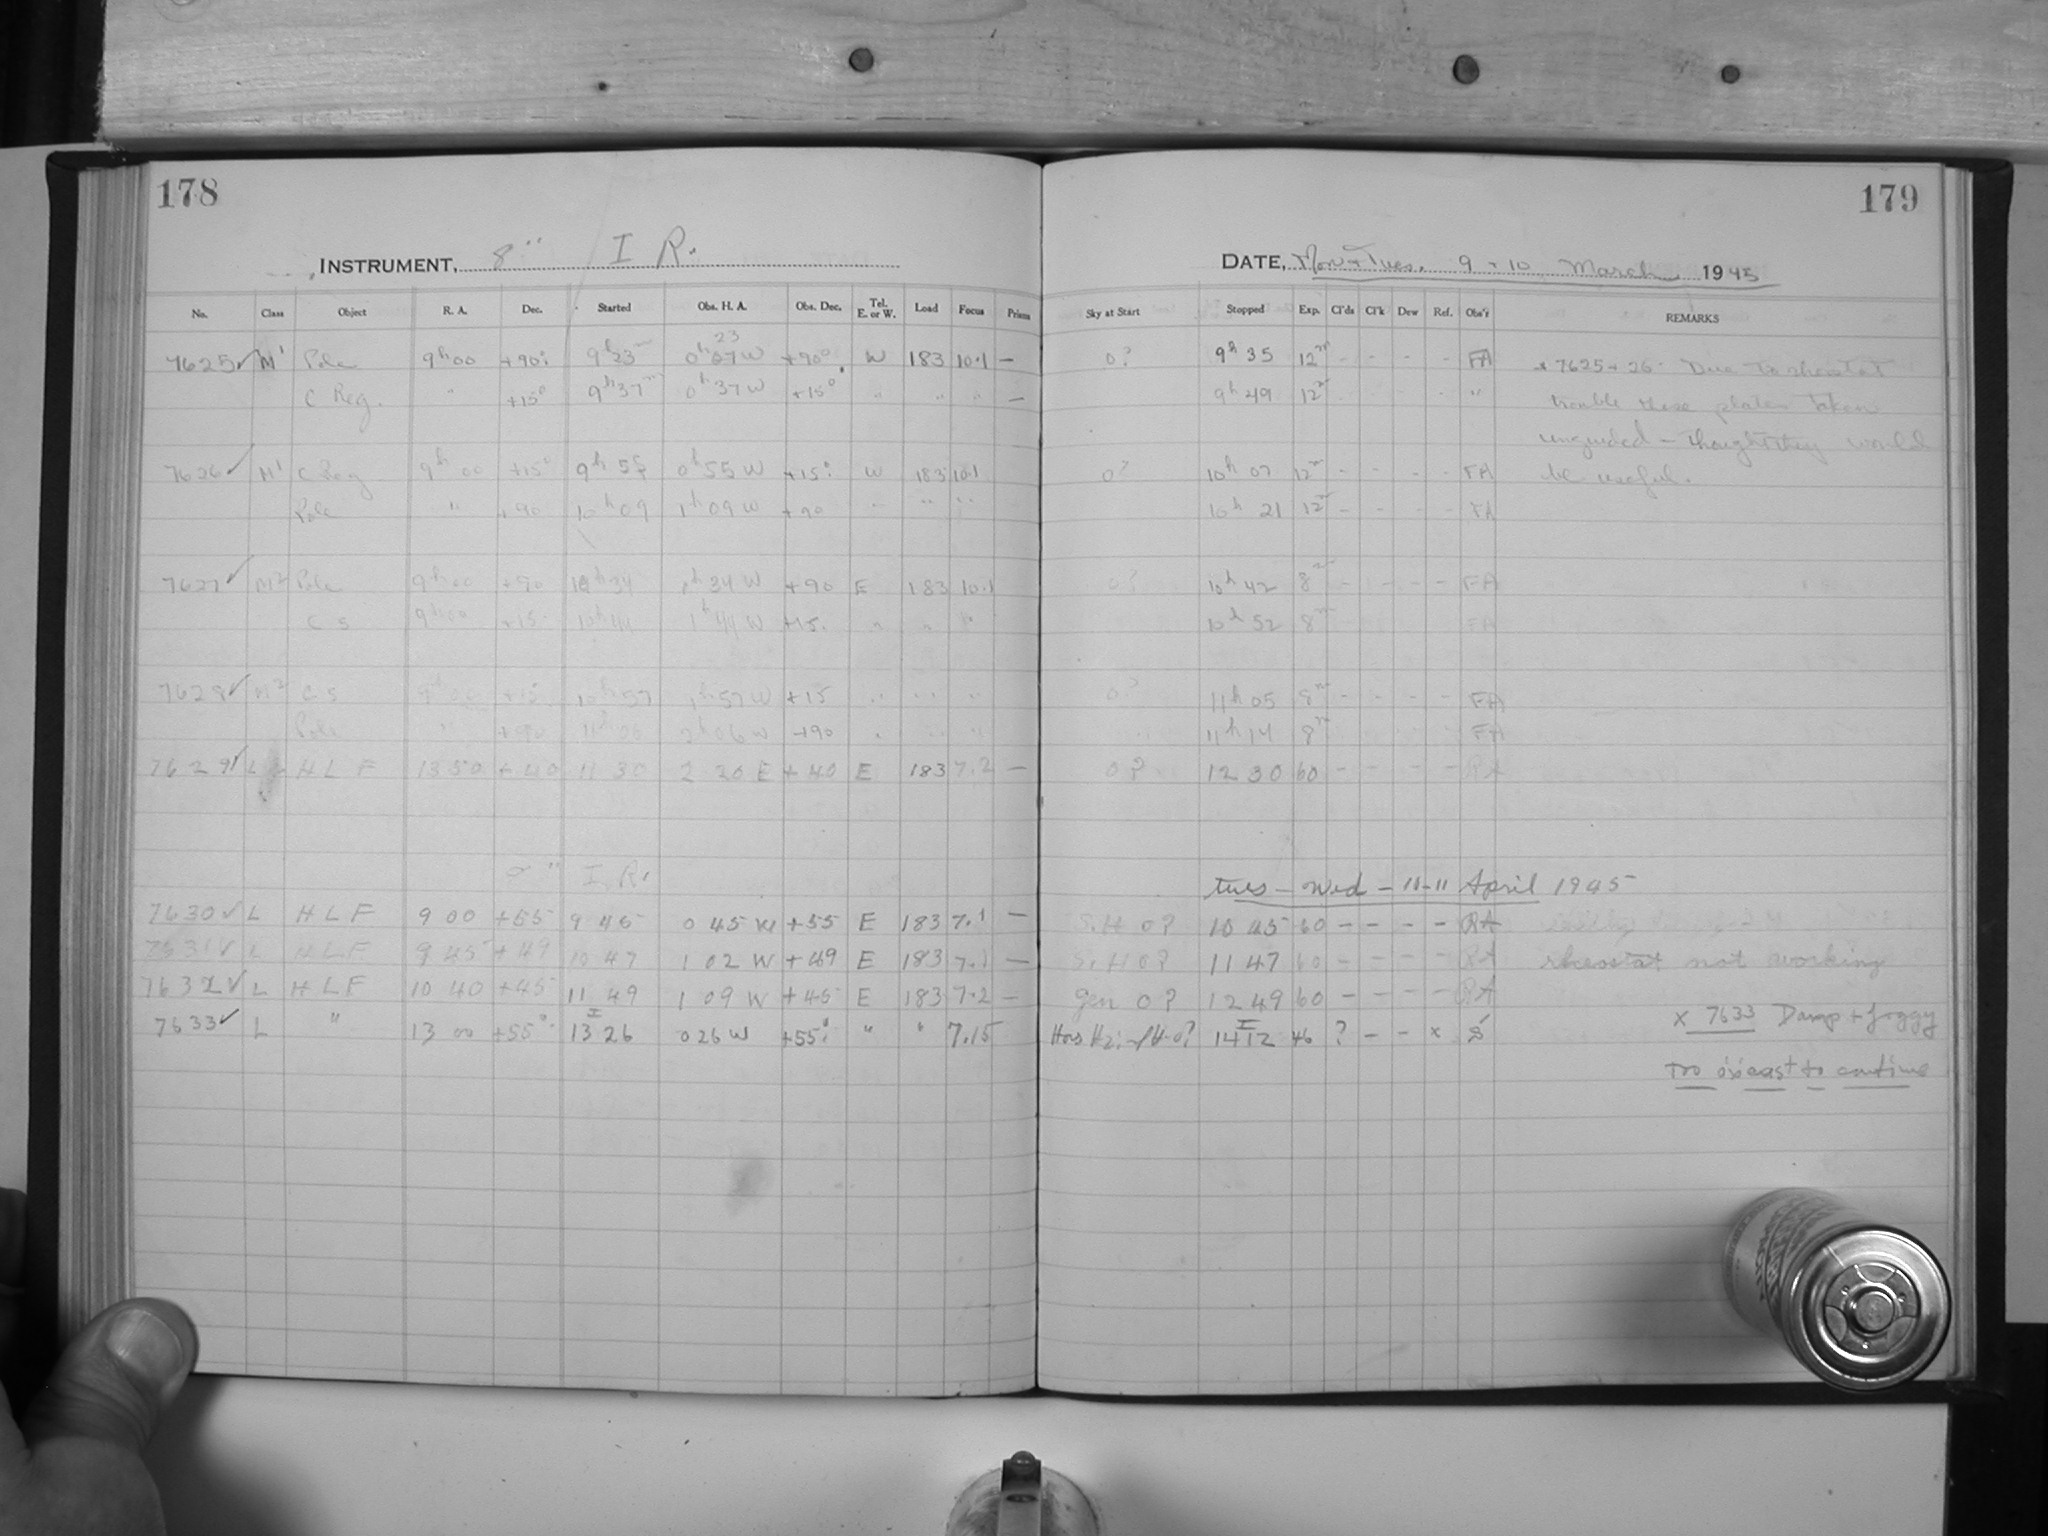 178
INSTRUMENT, 8" I R.
No. Class Object R. A. Dec. Started Obs. H. A. Obs. Dec. Tel. E. or W. Load Focus Prisms
23
7625 ✓ M¹ Pole 9ʰ00 +90° 9ʰ23ᵐ 0ʰ07W +90° W 183 10.1 —
C Reg. " +15° 9ʰ37ᵐ 0ʰ37W +15° " " " —
7626 ✓ M¹ C Reg 9ʰ00 +15° 9ʰ55 0ʰ55W +15° W 183 10.1
Pole " +90 10ʰ09 1ʰ09W +90 " " "
7627 ✓ M² Pole 9ʰ00 +90 10ʰ34 1ʰ34W +90 E 183 10.1
C S 9ʰ00 +15 10ʰ44 1ʰ44W +15 " " "
7628 ✓ M² C S 9ʰ00 +15 10ʰ57 1ʰ57W +15 " " "
Pole " +90 11ʰ06 2ʰ06W +90 " " "
7629 ✓ L HLF 13 50 +40 11 30 2 20 E +40 E 183 7.2 —
8" I.R.
7630 ✓ L HLF 9 00 +55 9 45 0 45 W +55 E 183 7.1 —
7631 ✓ L HLF 9 45 +49 10 47 1 02 W +49 E 183 7.1 —
7632 ✓ L HLF 10 40 +45 11 49 1 09 W +45 E 183 7.2 —
7633 ✓ L " 13 00 +55° 13 26 0 26 W +55° " " 7.15
179
DATE, Mon + Tues. 9 + 10 March 1945
Sky at Start Stopped Exp. Cl'ds Cl'k Dew Ref. Obs'r REMARKS
0? 9ʰ35 12ᵐ - - - - FA x 7625 + 26. Due to rheostat
9ʰ49 12ᵐ - " trouble these plates taken
unguided — thought they would
0? 10ʰ07 12ᵐ - - - - FA be useful.
10ʰ21 12ᵐ - - - - FA
0? 10ʰ42 8ᵐ - - - - FA
10ʰ52 8ᵐ FA
0? 11ʰ05 8ᵐ - - - - FA
11ʰ14 8ᵐ - - - - FA
0? 12 30 60 - - - - RA
Tues — Wed — 10-11 April 1945
S.H 0? 10 45 60 - - - - RA
S.H 0? 11 47 60 - - - - RA rheostat not working
gen 0? 12 49 60 - - - - RA
14 12 46 ? - - x S x 7633 Damp + foggy
too o'cast to continue